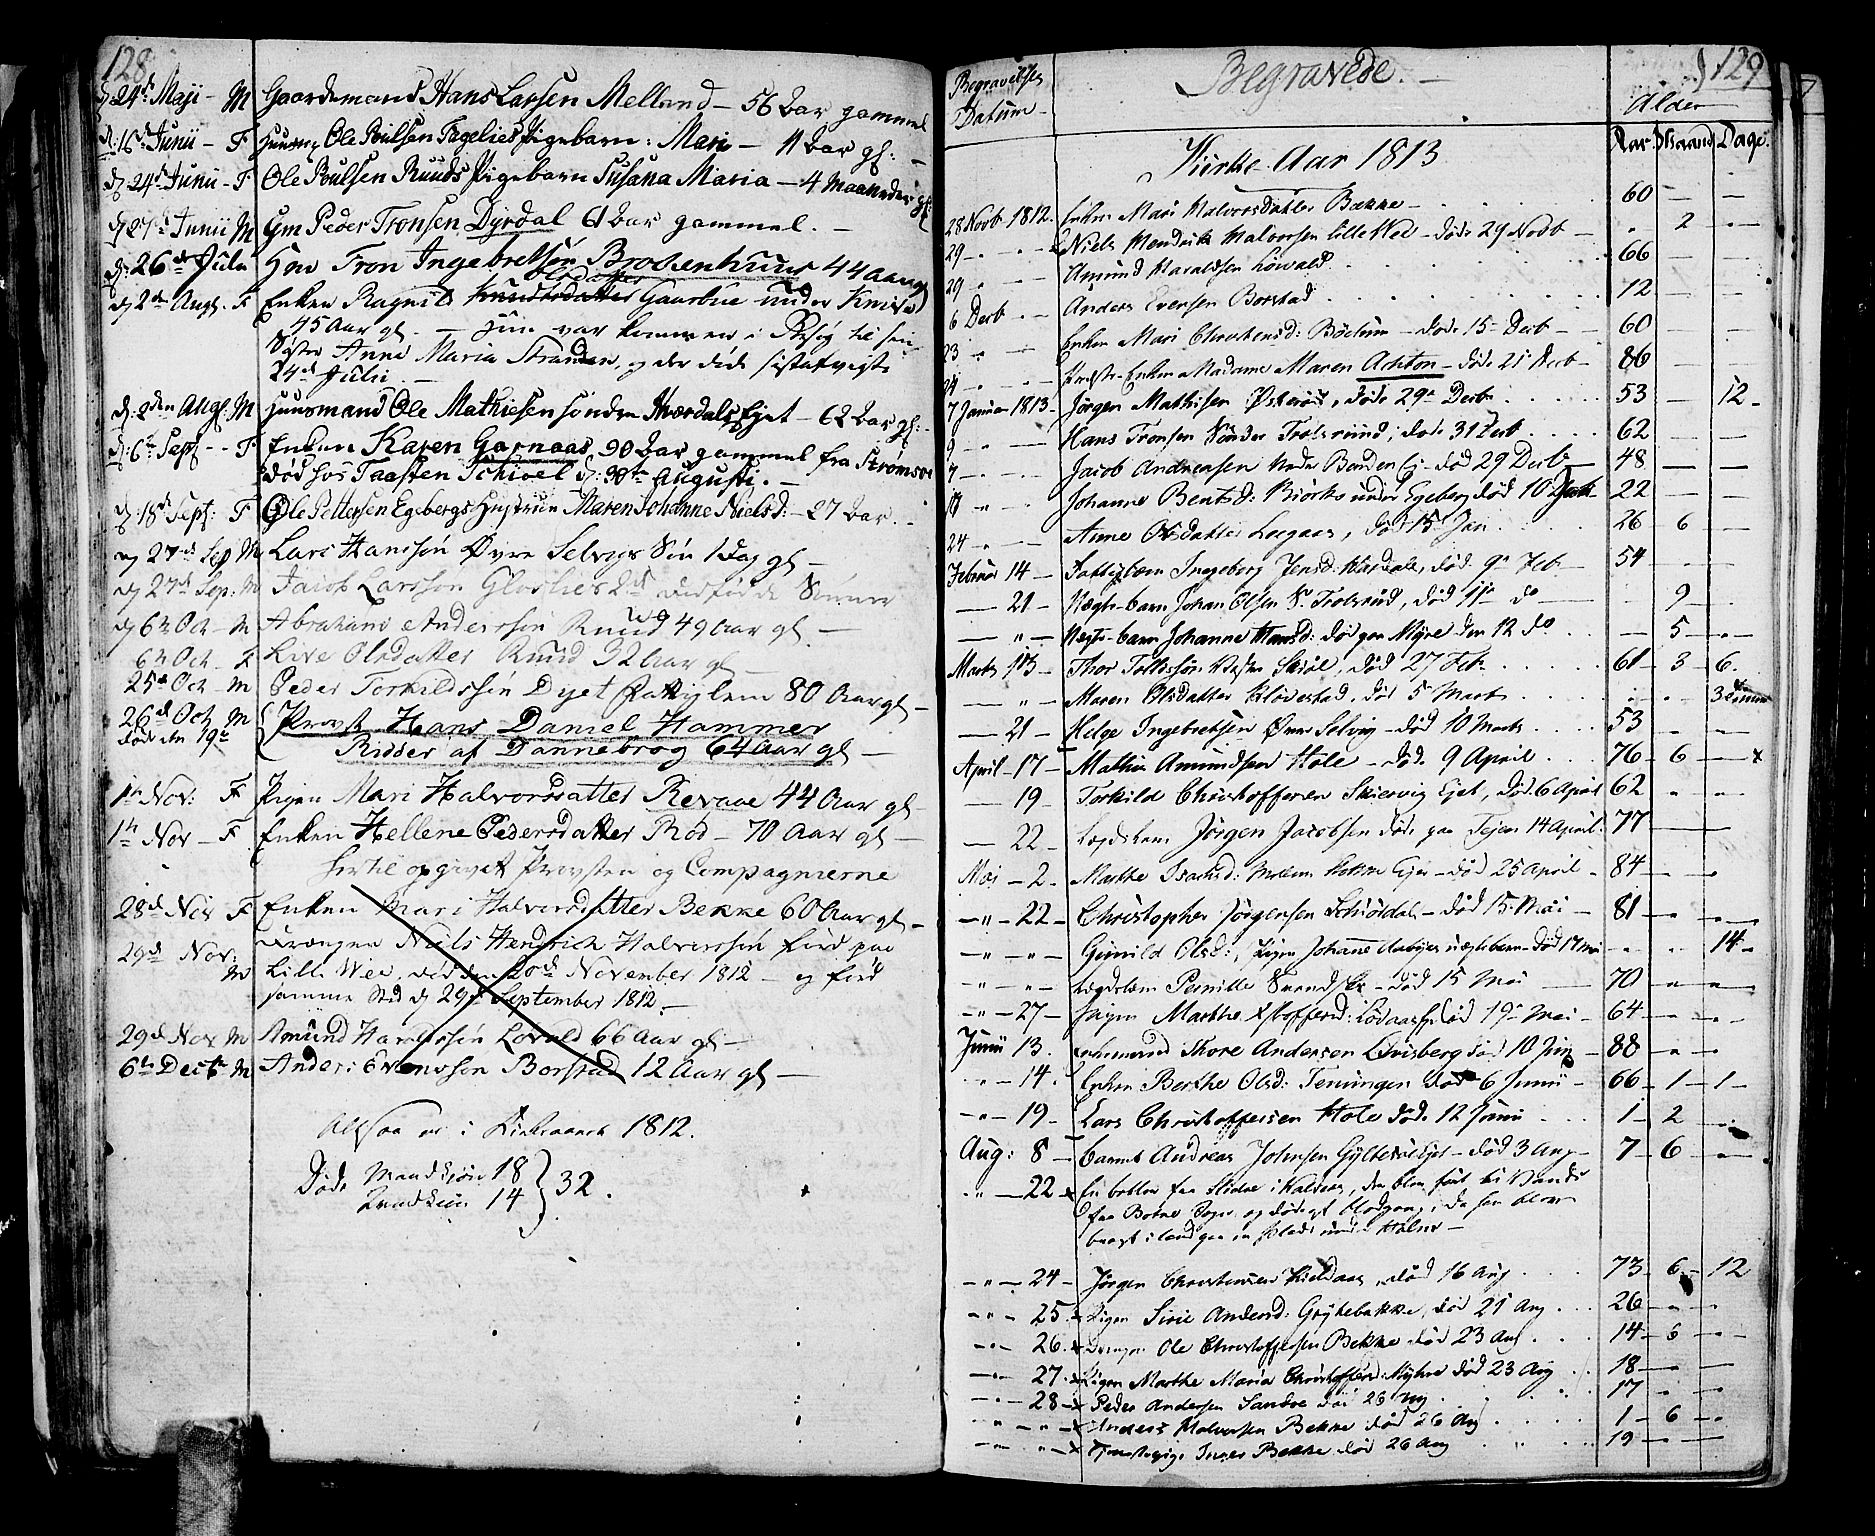 128
d: 24d Maji - M Gaardemand Hans Larsen Melland - 56 Aar gammel
d: 16d Junii - F Huusmd Ole Poulsen Fagelies Pigebarn: Mari - 11 Aar gl: -
d 24d Junii - F Ole Poulsen Ruuds Pigebarn Susana Maria - 4 Maaneder gl
d 27d Junii M Gm Peder Tronsen Dyrdal 61 Aar gammel. -
d: 26de Julii Hrr Tron Ingebretsøn Brobenhuus 44 Aar gl
d 2de Aug. F Enken Ragnild Olsdatter Gaarbue under
45 Aar gl. - Hun var kommen i Besøg til sin
Søster Anne Maria Stranden, og der døde sistafvigte
24d Julii -
d: 2den Aug: M Huusmand Ole Mathiesen søndre Hværdals Ejet - 62 Aar gl: -
d: 6te Sept - - F Enken Karen Garnaas, 90 Aar gammel fra Strømsøe
død hos Taasten Schivel d: 30te Augusti. -
d: 18d Sept: F Ole Pettersen Egebergs Hustrue Maren Johanne Nielsd: - 27 Aar. -
d 27de Sep M Lars Hanssøn Øvre Selvigs Søn 1 Dag gl -
d 27d Sep: M Jacob Larssøn Gloslies 2d dødfødde Sønner
d 6te Oct - M Abraham Anderssøn Ruud 49 Aar gl -
6te Oct - F Live Olsdatter Ruud 32 Aar gl -
25d Oct - M Peder Torkildssøn Dyet Fattiglem 80 Aar gl -
26d Oct M Provst Hans Daniel Hammer
døde den 19te Ridder af Dannebrog 64 Aar gl -
1te Nov: F Pigen Mari Halvorsdatter Revaae 44 Aar gl -
1te Nov - F Enken Hellene Pedersdatter Rød - 70 Aar gl -
hertil opgivet Provsten og Compagnierne
28d Nov F Enken Mari Halvorsdatter Bekke 60 Aar gl -
29d Nov: Drængen Niels Hendrich Halvorssøn født paa
M Lille Wee, ved den 20d November 1812 - og død
samme Sted d 29d September 1812 -
29d Nov M Amund Haraldssøn Løvald 66 Aar gl -
6te Decbr M Anders Evenssøn Borstad 12 Aar gl -
Altsaa er i Kirkeaaret 1812.
Døde Mandkiøn 18 } 32.
Qvindkiøn 14
129
Begravelses Datum
Begravede. -
Alder
Kirke-Aar 1813
Aar Maaned Dage.
28 Novb 1812. Enken Mari Halvorsdatter Bække - 60 - -
29 - - Niels Hendrik Halvorsen lille Wee - døde 29 Novb - 2 - -
29 - Amund Haraldsen Løvald 66 - -
6 Decb - Anders Evensen Borstad 12 - -
23 - Enken Mari Christensd: Bøctum - døde 15 Decb - 60
24 - - Præste-Enken Madame Maren Achton - døde 21 Decb - 86
7 Januar 1813. Jørgen Mathisen Østerød, døde 29 Decbr 53 - 12 -
9 - - Hans Tronsen Søndre Trolsruud, døde 31 Decb 62 - -
7 - - Jacob Andreasen Nedre Berden Ej - død 29 Decbr - 48 - -
Johanne Bentsd: Biørks under Egeberg død 10 22 - -
24 - Anne Olsdatter Løegaas, død 15 Jan 26 6 -
Februar 14 - Fattiglem Ingeborg Jensd: Hværdals, død 9 Feb - 54 - -
- 21 - Nægte-barn Johan Olsen S. Trolsrud, død 11 do - 9 -
- " - Nægte-barn Johanne Hansd: død paa Myre den 12 do - 5 - -
Marts 13 - Thor Tollefsøn Vestre Skiøl, død 27 Feb. 61 - 3 - 6.
- " - Maren Olsdatter Kløverstad, død 5 Marts 3
- 21 - Helge Ingebretsen Øvre Selvig - død 10 Marts 53 - -
April - 17 - Mathis Amundsen Hole - døde 9 April 76 - 6 - x
- 19 - Torkild Christoffersen Skiervig Ejet, død 6 April 62 " "
- 22 - Lægdslem Jørgen Jacobsen døde paa Tejen 14 April. 77 - -
Mai - 2 - Marthe Isachsd: Mellem Holm Ejer - død 25 April - 84 - -
- " - 22 - Christopher Jørgensen Schiørdal - død 15 Mai - 81 - -
- " - " - Gunild Olsd:, Pigen Johanne Aabyes nægtebarn - død 17 Mai - 14 -
- " - " - Lægdslem Pernille - død 15 Mai - 70 " "
- " - 27 - Pigen Marthe Xstoffersd: død 19 Mai - 64 - -
Junii 13. Thore Andersen Løvisberg død 10 Jun - 88 - -
- " - 14. Enken Berthe Olsd: Temmingen død 6 Junii - 66 - 1 - 1 -
- " - 19 - Lars Christoffersen Hole døde 12 Junii 1 - 2 -
Aug: 8 - barnet Andreas Johnsen Gylterud Ejet - død 3 Aug - 7 - 6 -
- " - 22 x En betler fra Slidre i Valders, der blev ført til Vands
fra Botne Sogn, og døde af blodgang, da han blev
bragt i land paa en plads under Holm -
- " - 24 - Jørgen Christensen Kieldaas, død 16 Aug 73 - 6 - 12
- " - 25. x Pigen Sirie Andersd: Grytebakke, død 21 Aug 26 - " -
- " - 26. x Drengen Ole Christoffersen Bekke død 23 Aug 14 - 6 - -
- " - 27. x Pigen Marthe Maria Christoffersd: Myhre død 23 Aug 18 - -
- " - 28 - x Peder Andersen Sandøe død 26 Aug 17 - -
- " - " x Anders Halvorsen Bekke død 26 Aug 1 - 6 - -
- " - " x Tjenestepige Bekke død 26 Aug 19 - - -